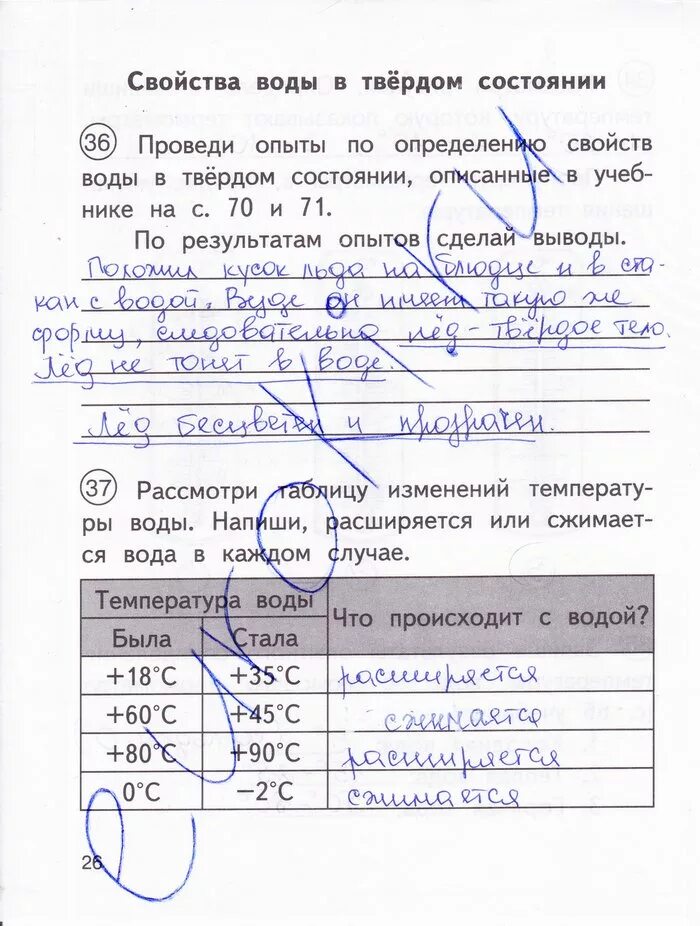 Свойства воды в твёрдом состоянии
36 Проведи опыты по определению свойств
воды в твёрдом состоянии, описанные в учеб-
нике на с. 70 и 71.
По результатам опытов сделай выводы.
Положил кусок льда на блюдце и в ста-
кан с водой. Везде он имеет такую же
форму, следовательно лёд - твёрдое тело.
Лёд не тонет в воде.
Лёд бесцветен и прозрачен.
37 Рассмотри таблицу изменений температу-
ры воды. Напиши, расширяется или сжимает-
ся вода в каждом случае.
Температура воды Что происходит с водой?
Была Стала
+18°С +35°С расширяется
+60°С +45°С сжимается
+80°С +90°С расширяется
0°С −2°С сжимается
26